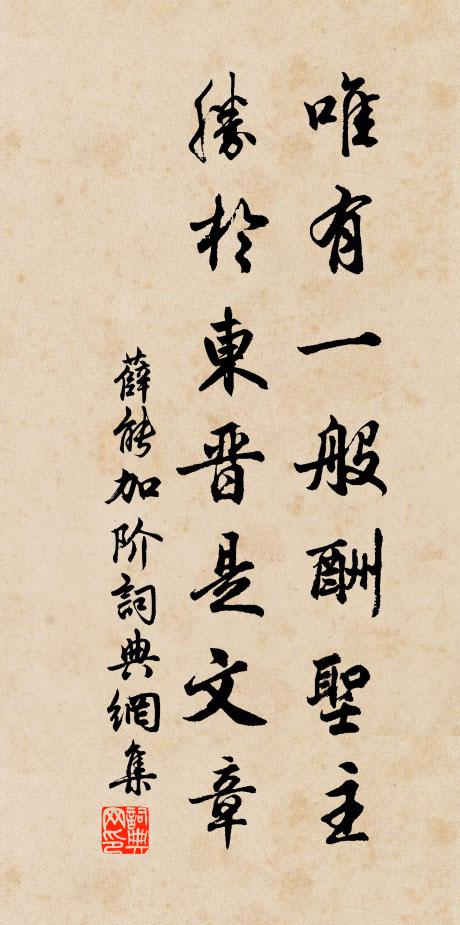 唯有一般酬聖主
勝於東晋是文章
薛能加阶詞典網集
詞典网印